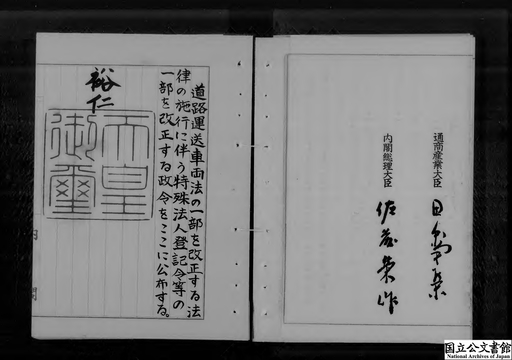 道路運送車両法の一部を改正する法
律の施行に伴う特殊法人登記令等の
一部を改正する政令をここに公布する。
裕仁
天皇
御璽
通商産業大臣
内閣総理大臣 佐藤栄作
国立公文書館
National Archives of Japan